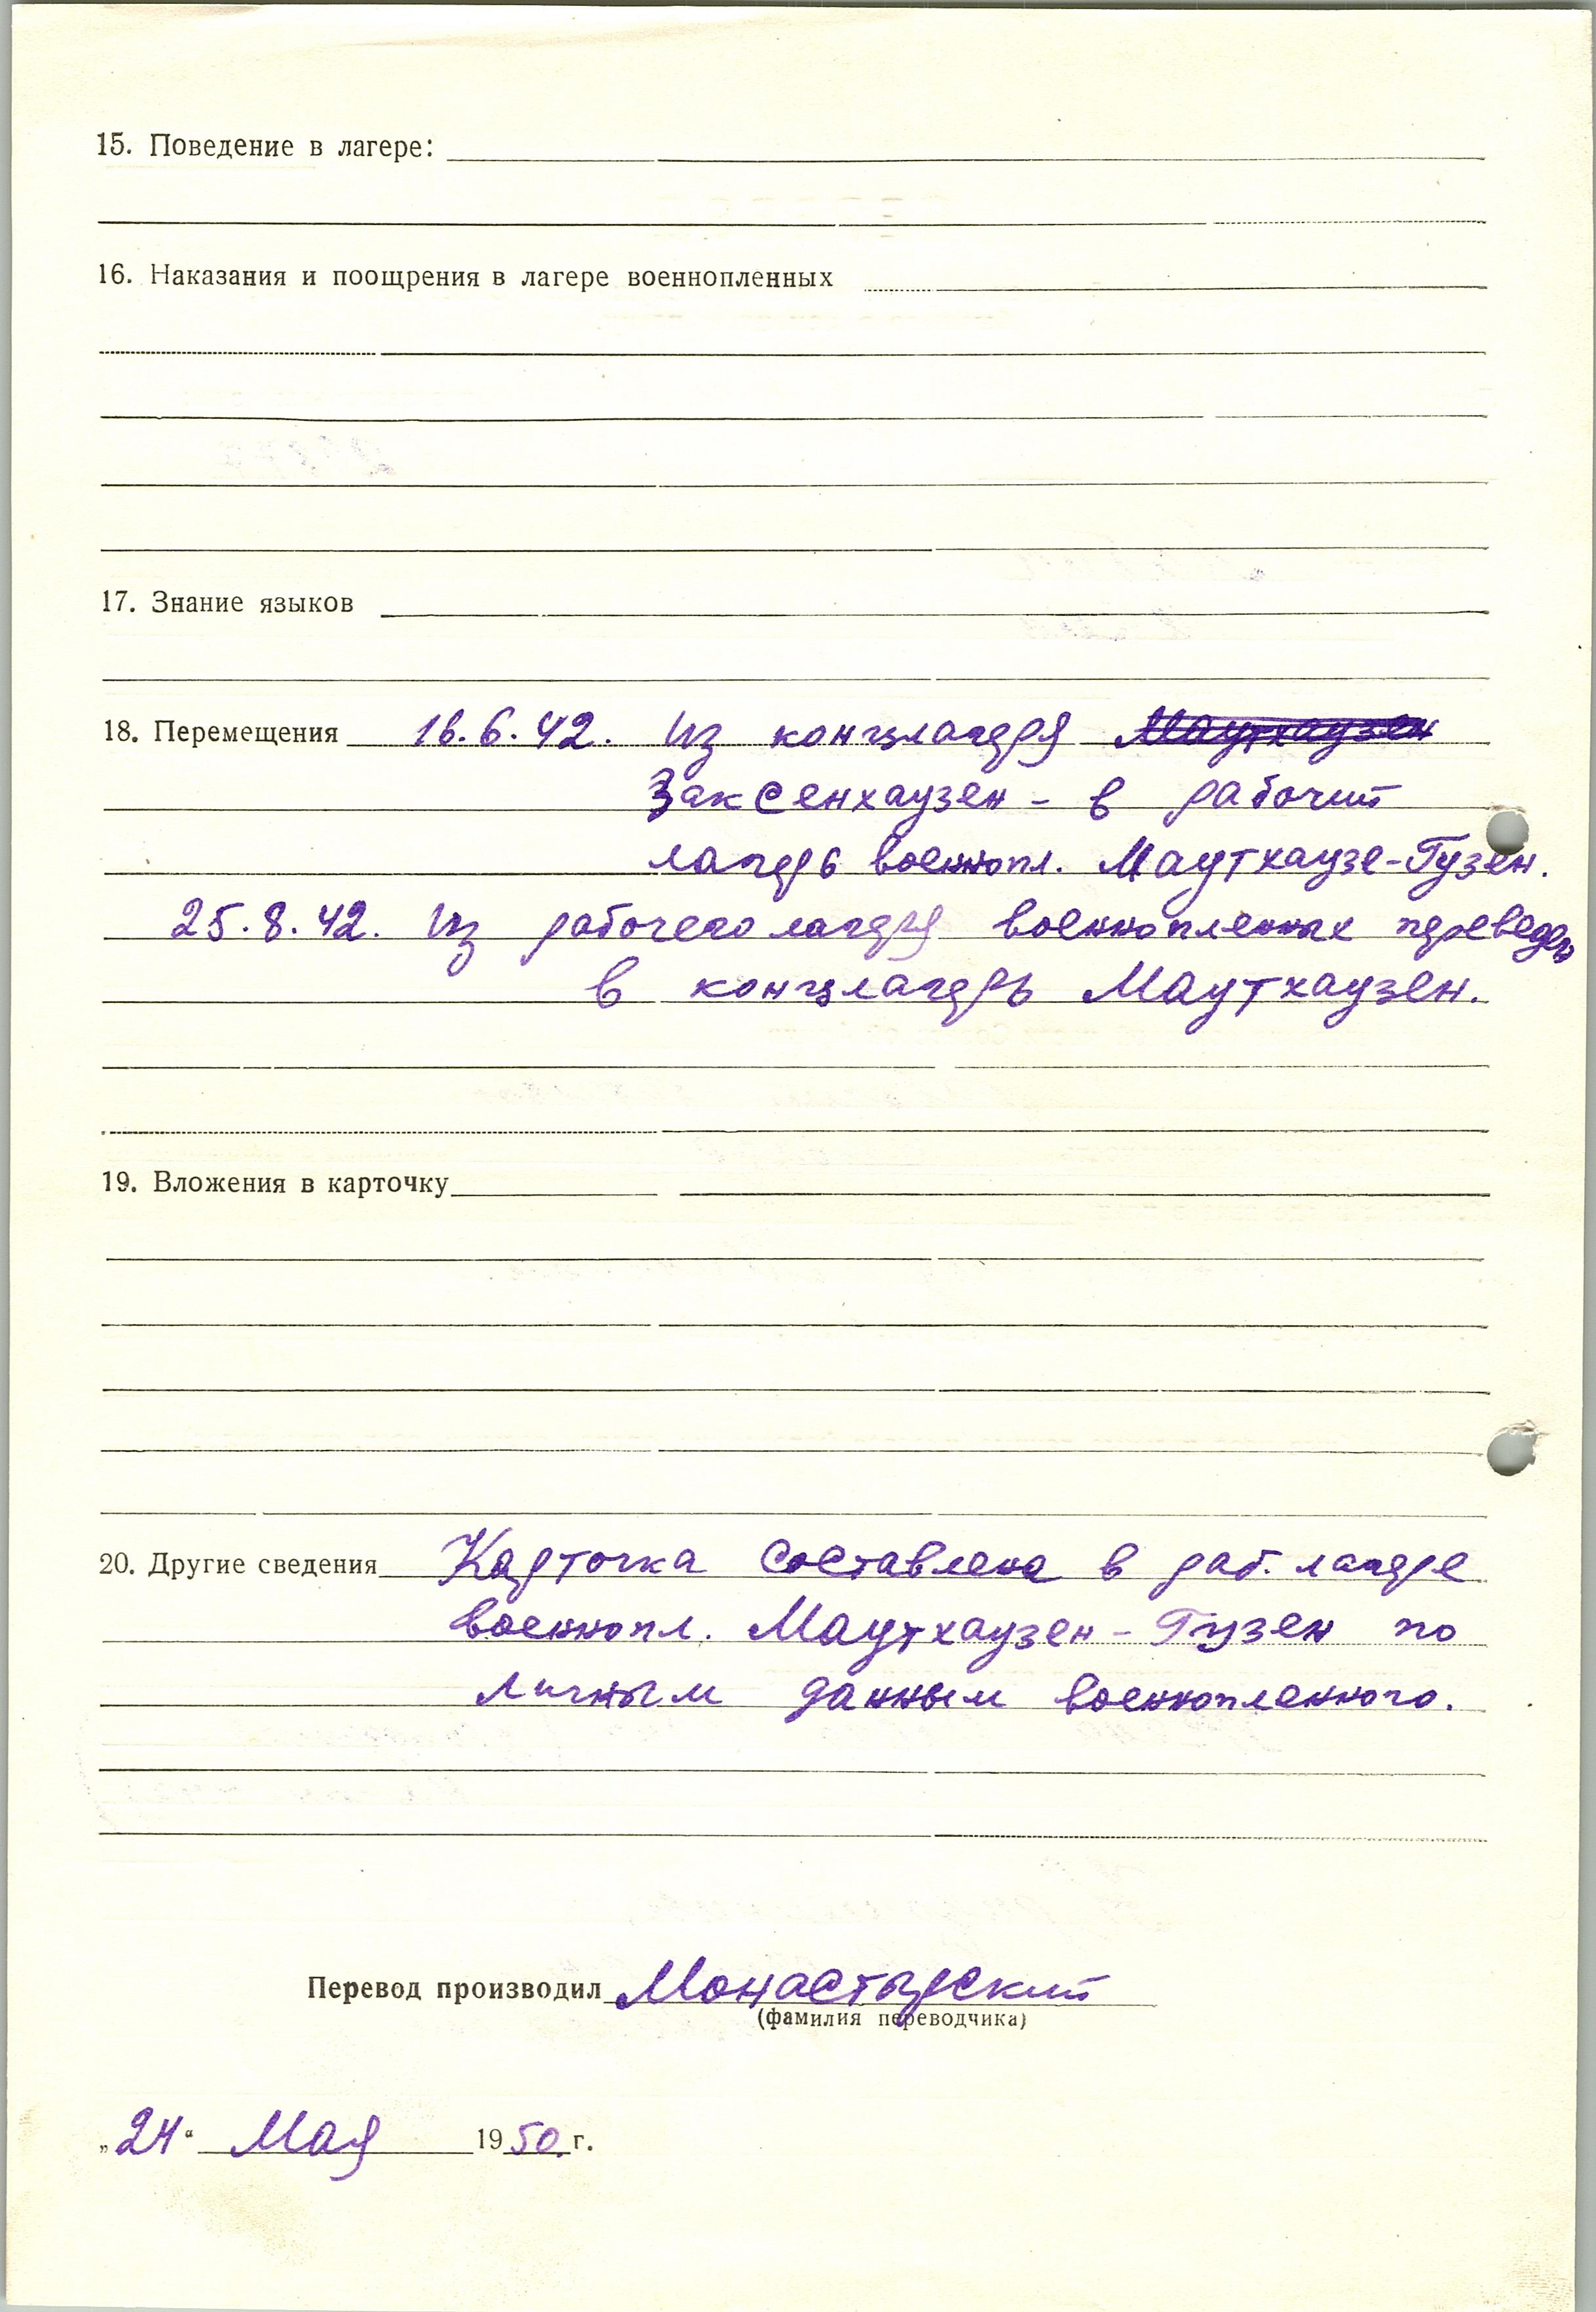 15. Поведение в лагере:
16. Наказания и поощрения в лагере военнопленных
17. Знание языков
18. Перемещения 16.6.42. Из концлагеря Маутхаузен
Заксенхаузен - в рабочий
лагерь военнопл. Маутхаузе-Гузен.
25.8.42. Из рабочего лагеря военнопленных переведен
в концлагерь Маутхаузен.
19. Вложения в карточку
20. Другие сведения Карточка составлена в раб. лагере
военнопл. Маутхаузен - Гузен по
личным данным военнопленного.
Перевод производил Монастырский
(фамилия переводчика)
„24“ Мая 1950 г.